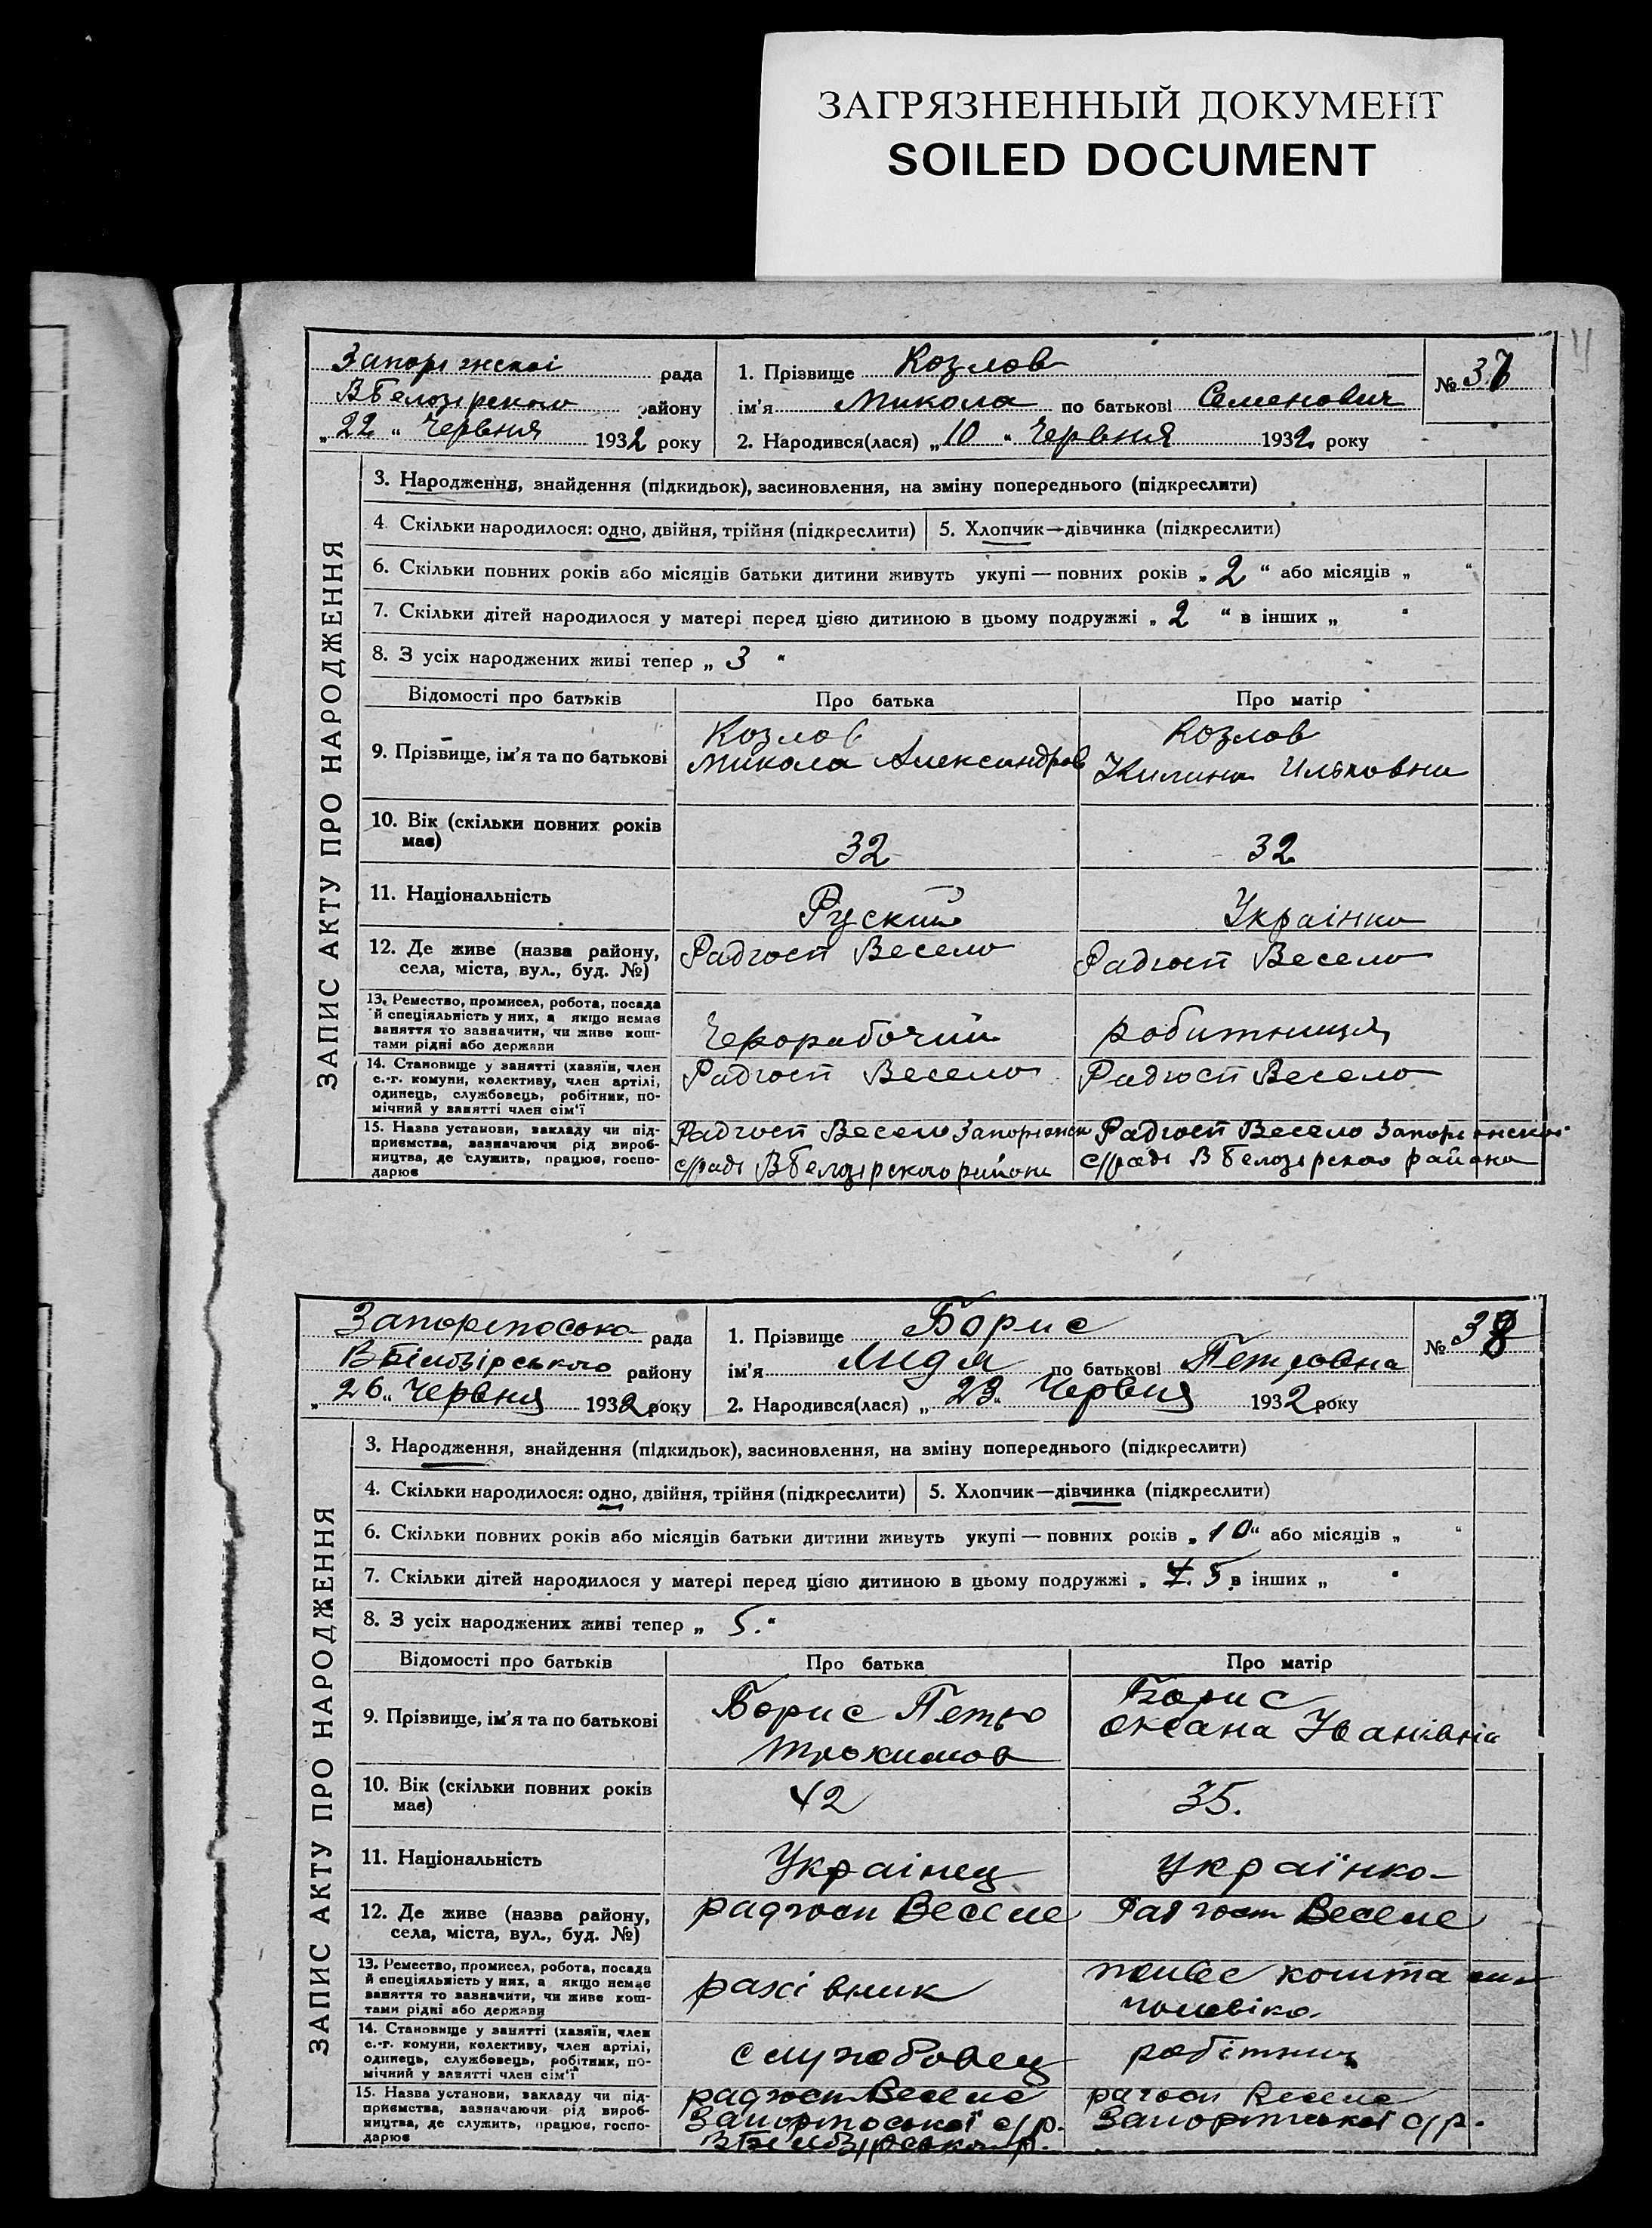 ЗАГРЯЗНЕННЫЙ ДОКУМЕНТ
SOILED DOCUMENT
Запоріжскоі рада
ВБелозірского району
„22“ Червня 1932 року
1. Прізвище Козлов
ім'я Микола по батькові Семенович
2. Народився(лася) „10“ Червня 1932 року
№ 37
ЗАПИС АКТУ ПРО НАРОДЖЕННЯ
3. Народження, знайдення (підкидьок), засиновлення, на зміну попереднього (підкреслити)
4. Скільки народилося: одно, двійня, трійня (підкреслити) 5. Хлопчик—дівчинка (підкреслити)
6. Скільки повних років або місяців батьки дитини живуть укупі — повних років „2“ або місяців „ “
7. Скільки дітей народилося у матері перед цією дитиною в цьому подружжі „2“ в інших „ “
8. З усіх народжених живі тепер „3“
Відомості про батьків Про батька Про матір
9. Прізвище, ім'я та по батькові
Козлов
Микола Александров
Козлов
Килина Ильковна
10. Вік (скільки повних років
має)
32
32
11. Національність
Руский
Украінка
12. Де живе (назва району,
села, міста, вул., буд. №)
Радгосп Весело
Радгосп Весело
13. Ремество, промисел, робота, посада
й спеціяльність у них, а якщо немає
заняття то зазначити, чи живе кош-
тами рідні або держави
Чернорабочий
робитниця
14. Становище у занятті (хазяїн, член
с.-г. комуни, колективу, член артілі,
одинець, службовець, робітник, по-
мічний у занятті член сім'ї
Радгосп Весело
Радгосп Весело
15. Назва установи, закладу чи під-
приємства, зазначаючи рід вироб-
ництва, де служить, працює, госпо-
дарює
Радгосп Весело Запоріжск
с/раді ВБелозірского района
Радгосп Весело Запоріжскоі
с/раді ВБелозірского района
Запорізська рада
ВБілозірського району
„26“ Червня 1932 року
1. Прізвище Борис
ім'я Лидя по батькові Петровна
2. Народився(лася) „23“ Червня 1932 року
№ 38
ЗАПИС АКТУ ПРО НАРОДЖЕННЯ
3. Народження, знайдення (підкидьок), засиновлення, на зміну попереднього (підкреслити)
4. Скільки народилося: одно, двійня, трійня (підкреслити) 5. Хлопчик—дівчинка (підкреслити)
6. Скільки повних років або місяців батьки дитини живуть укупі — повних років „10“ або місяців „ “
7. Скільки дітей народилося у матері перед цією дитиною в цьому подружжі „ 5 в інших „ “
8. З усіх народжених живі тепер „5.“
Відомості про батьків Про батька Про матір
9. Прізвище, ім'я та по батькові
Борис Петро
Трохимов
Борис
Оксана Іванівна
10. Вік (скільки повних років
має)
42
35.
11. Національність
Украінец
українка
12. Де живе (назва району,
села, міста, вул., буд. №)
радгосп Веселе
Радгосп Веселе
13. Ремество, промисел, робота, посада
й спеціяльність у них, а якщо немає
заняття то зазначити, чи живе кош-
тами рідні або держави
рахівник
живе кошта ми
чоловіка
14. Становище у занятті (хазяїн, член
с.-г. комуни, колективу, член артілі,
одинець, службовець, робітник, по-
мічний у занятті член сім'ї
службовец
робітниц
15. Назва установи, закладу чи під-
приємства, зазначаючи рід вироб-
ництва, де служить, працює, госпо-
дарює
радгосп Веселе
Запорізської с/р.
ВБілозірського р.
рагосп Веселе
Запорізької с/р.